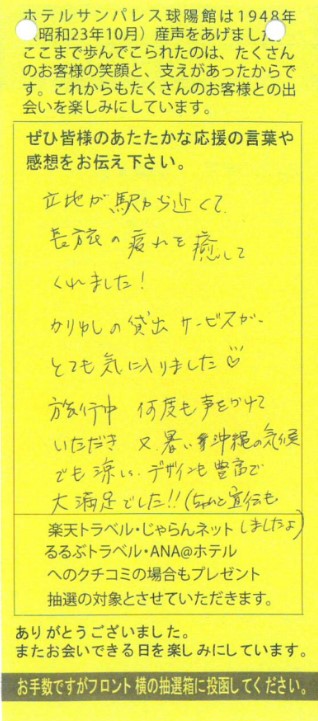 ホテルサンパレス球陽館は1948年
(昭和23年10月)産声をあげました。
ここまで歩んでこられたのは、たくさん
のお客様の笑顔と、支えがあったからで
す。これからもたくさんのお客様との出
会いを楽しみにしています。
ぜひ皆様のあたたかな応援の言葉や
感想をお伝え下さい。
立地が駅から近くて、
長旅の疲れを癒して
くれました!
かりゆしの貸出サービスが、
とても気に入りました♡
旅行中 何度も声をかけて
いただき 又、暑い沖縄の気候
でも涼しい、デザインも豊富で
大満足でした!!(ちゃんと宣伝も
しましたよ)
楽天トラベル・じゃらんネット
るるぶトラベル・ANA@ホテル
へのクチコミの場合もプレゼント
抽選の対象とさせていただきます。
ありがとうございました。
またお会いできる日を楽しみにしています。
お手数ですがフロント横の抽選箱に投函してください。